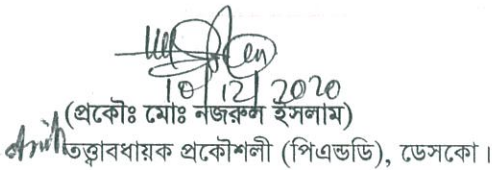 10/12/2020
(প্রকৌঃ মোঃ নজরুল ইসলাম)
তত্ত্বাবধায়ক প্রকৌশলী (পিএন্ডডি), ডেসকো।